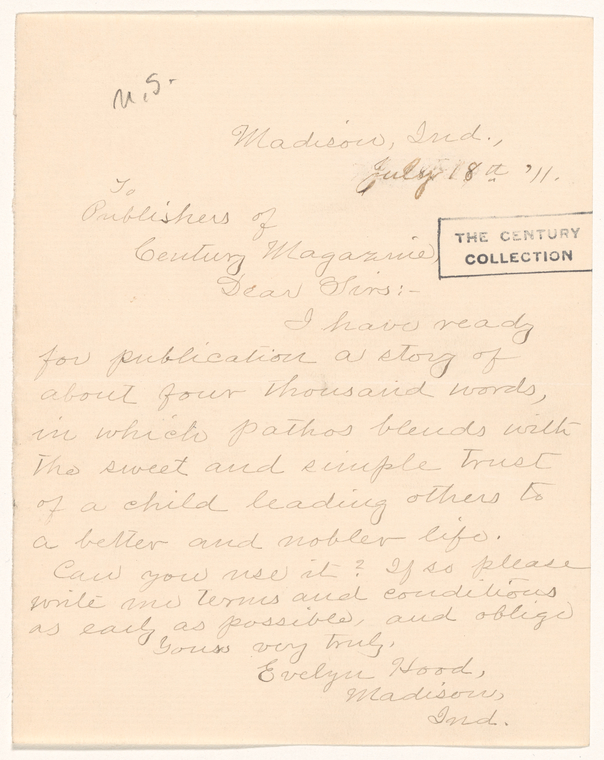 N.S.
Madison, Ind.,
July 18th '11.
To
Publishers of
Century Magazine,
THE CENTURY
COLLECTION
Dear Sirs:-
I have ready
for publication a story of
about four thousand words,
in which pathos blends with
the sweet and simple trust
of a child leading others to
a better and nobler life.
Can you use it? If so please
write me terms and conditions
as early as possible, and oblige
Yours very truly,
Evelyn Hood,
Madison,
Ind.